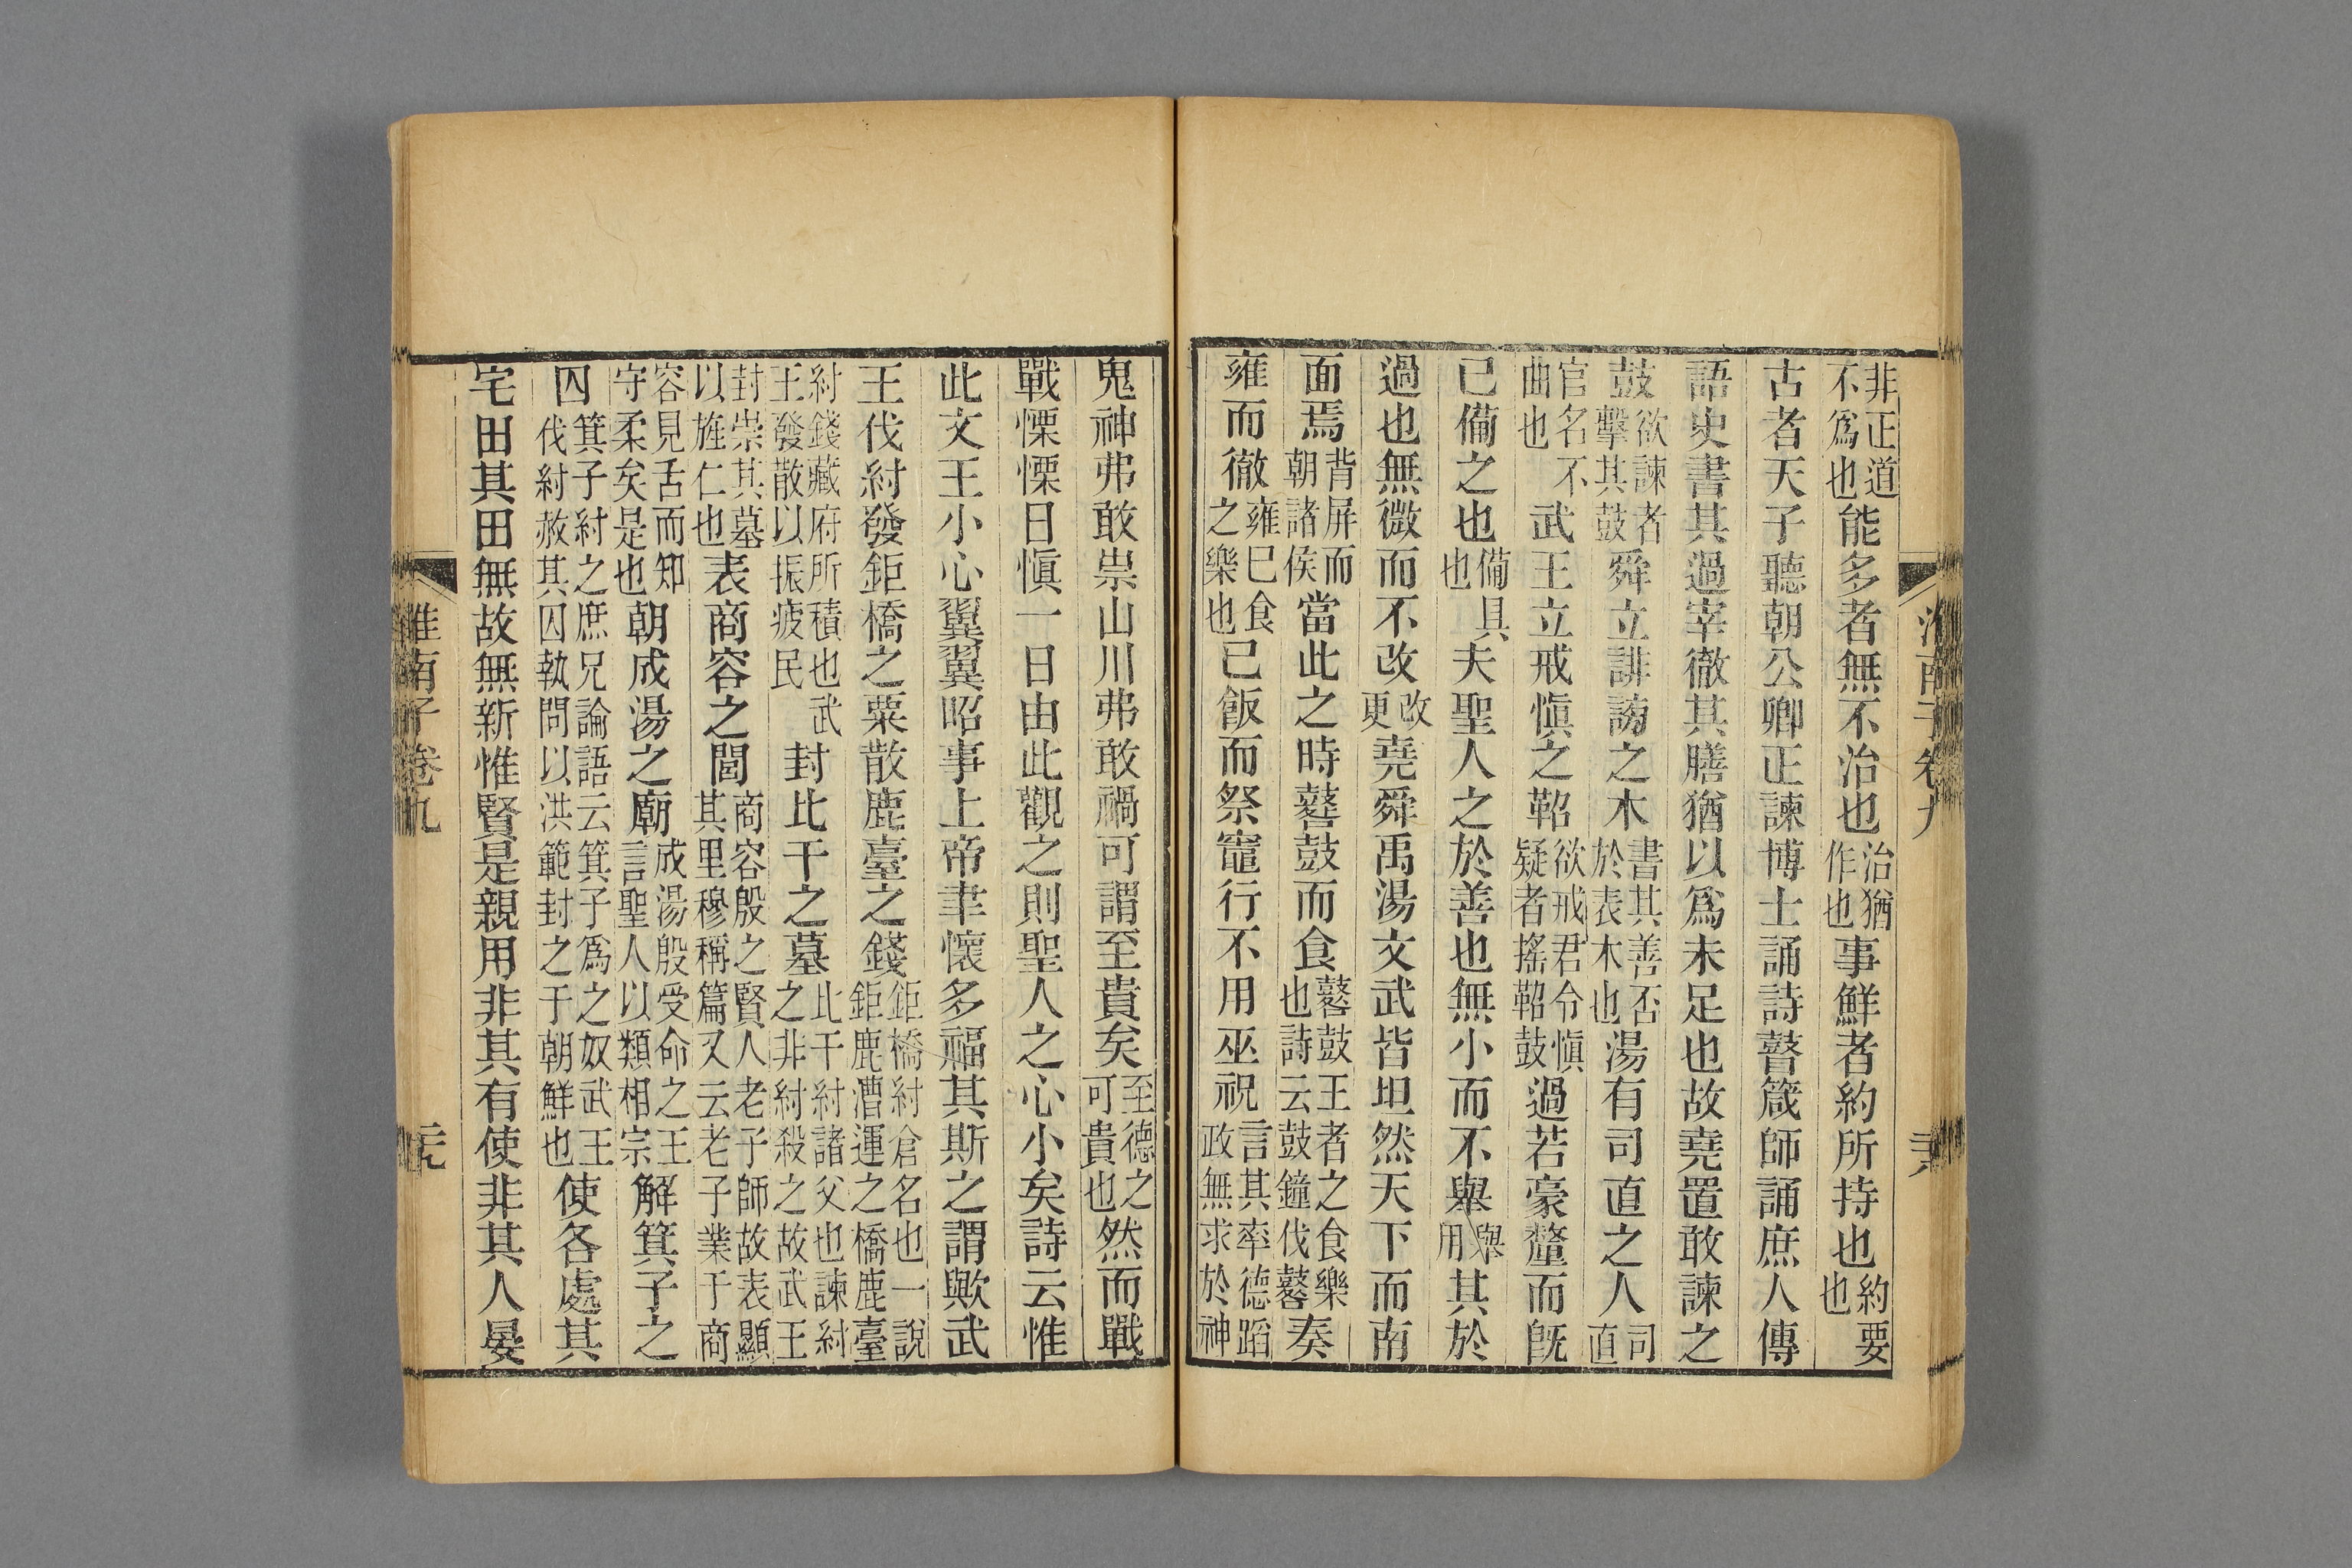 非正道不爲也能多者無不治也治猶作也事鮮者約所持也約要也
古者天子聽朝公卿正諫博士誦詩瞽箴師誦庶人傳
語史書其過宰徹其膳猶以爲未足也故堯置敢諫之
鼓欲諫者擊其鼓舜立誹謗之木書其善否於表木也湯有司直之人司直
官名不曲也武王立戒愼之鞀欲戒君令愼疑者搖鞀鼓過若豪釐而旣
已備之也備具也夫聖人之於善也無小而不舉舉用其於
過也無微而不改改更堯舜禹湯文武皆坦然天下而南
面焉背屏而朝諸侯當此之時鼛鼓而食鼛鼓王者之食樂也詩云鼓鐘伐鼛奏
雍而徹雍巳食之樂也已飯而祭竈行不用巫祝言其率德蹈政無求於神
鬼神弗敢祟山川弗敢禍可謂至貴矣至德之可貴也然而戰
戰慄慄日愼一日由此觀之則聖人之心小矣詩云惟
此文王小心翼翼昭事上帝聿懷多福其斯之謂歟武
王伐紂發鉅橋之粟散鹿臺之錢鉅橋紂倉名也一說鉅鹿漕運之橋鹿臺
紂錢藏府所積也武王發散以振疲民封比干之墓比干紂諸父也諫紂之非紂殺之故武王
封崇其墓以旌仁也表商容之閭商容殷之賢人老子師故表顯其里穆稱篇又云老子業于商
容見舌而知守柔矣是也朝成湯之廟成湯殷受命之王言聖人以類相宗解箕子之
囚箕子紂之庶兄論語云箕子爲之奴武王伐紂赦其囚執問以洪範封之于朝鮮也使各處其
宅田其田無故無新惟賢是親用非其有使非其人晏
淮南子卷九